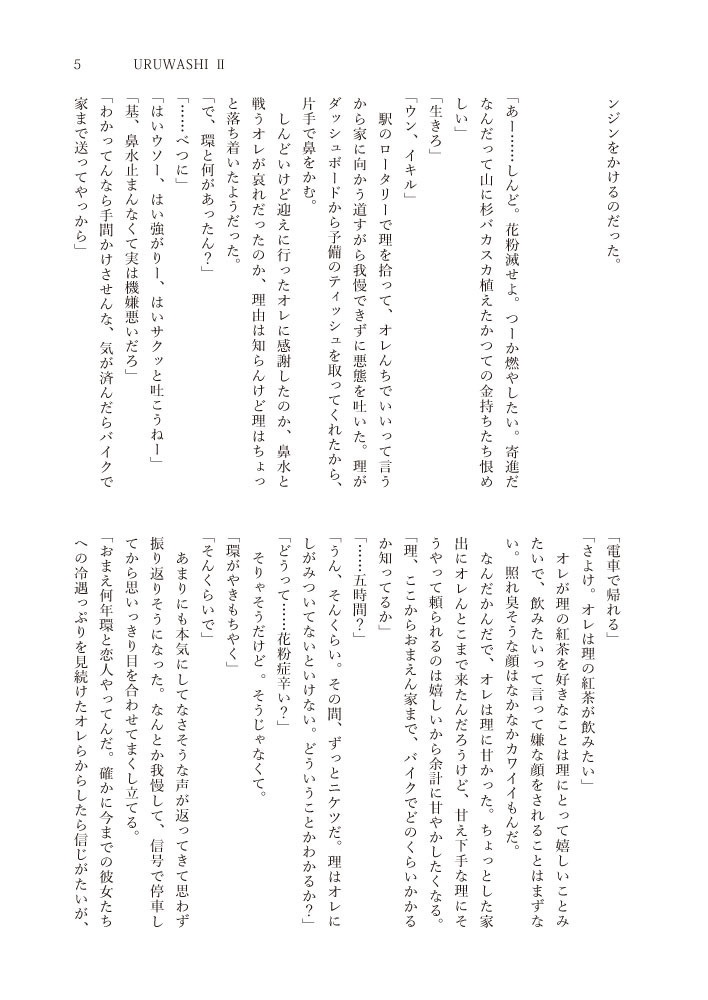 5　URUWASHI Ⅱ
ンジンをかけるのだった。
「あー……しんど。花粉滅せよ。つーか燃やしたい。寄進だ
なんだって山に杉バカスカ植えたかつての金持ちたち恨め
しい」
「生きろ」
「ウン、イキル」
　駅のロータリーで理を拾って、オレんちでいいって言う
から家に向かう道すがら我慢できずに悪態を吐いた。理が
ダッシュボードから予備のティッシュを取ってくれたから、
片手で鼻をかむ。
　しんどいけど迎えに行ったオレに感謝したのか、鼻水と
戦うオレが哀れだったのか、理由は知らんけど理はちょっ
と落ち着いたようだった。
「で、環と何があったん？」
「……べつに」
「はいウソー、はい強がりー、はいサクッと吐こうねー」
「基、鼻水止まんなくて実は機嫌悪いだろ」
「わかってんなら手間かけさせんな、気が済んだらバイクで
家まで送ってやっから」
「電車で帰れる」
「さよけ。オレは理の紅茶が飲みたい」
　オレが理の紅茶を好きなことは理にとって嬉しいことみ
たいで、飲みたいって言って嫌な顔をされることはまずな
い。照れ臭そうな顔はなかなかカワイイもんだ。
　なんだかんだで、オレは理に甘かった。ちょっとした家
出にオレんとこまで来たんだろうけど、甘え下手な理にそ
うやって頼られるのは嬉しいから余計に甘やかしたくなる。
「理、ここからおまえん家まで、バイクでどのくらいかかる
か知ってるか」
「……五時間？」
「うん、そんくらい。その間、ずっとニケツだ。理はオレに
しがみついてないといけない。どういうことかわかるか？」
「どうって……花粉症辛い？」
　そりゃそうだけど。そうじゃなくて。
「環がやきもちやく」
「そんくらいで」
　あまりにも本気にしてなさそうな声が返ってきて思わず
振り返りそうになった。なんとか我慢して、信号で停車し
てから思いっきり目を合わせてまくし立てる。
「おまえ何年環と恋人やってんだ。確かに今までの彼女たち
への冷遇っぷりを見続けたオレらからしたら信じがたいが、